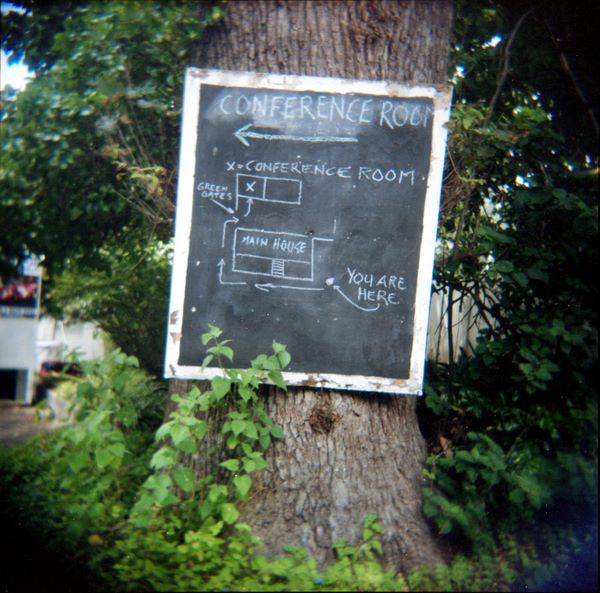 CONFERENCE ROOM
X = CONFERENCE ROOM.
X
GREEN
GATES
MAIN HOUSE
YOU ARE
HERE.